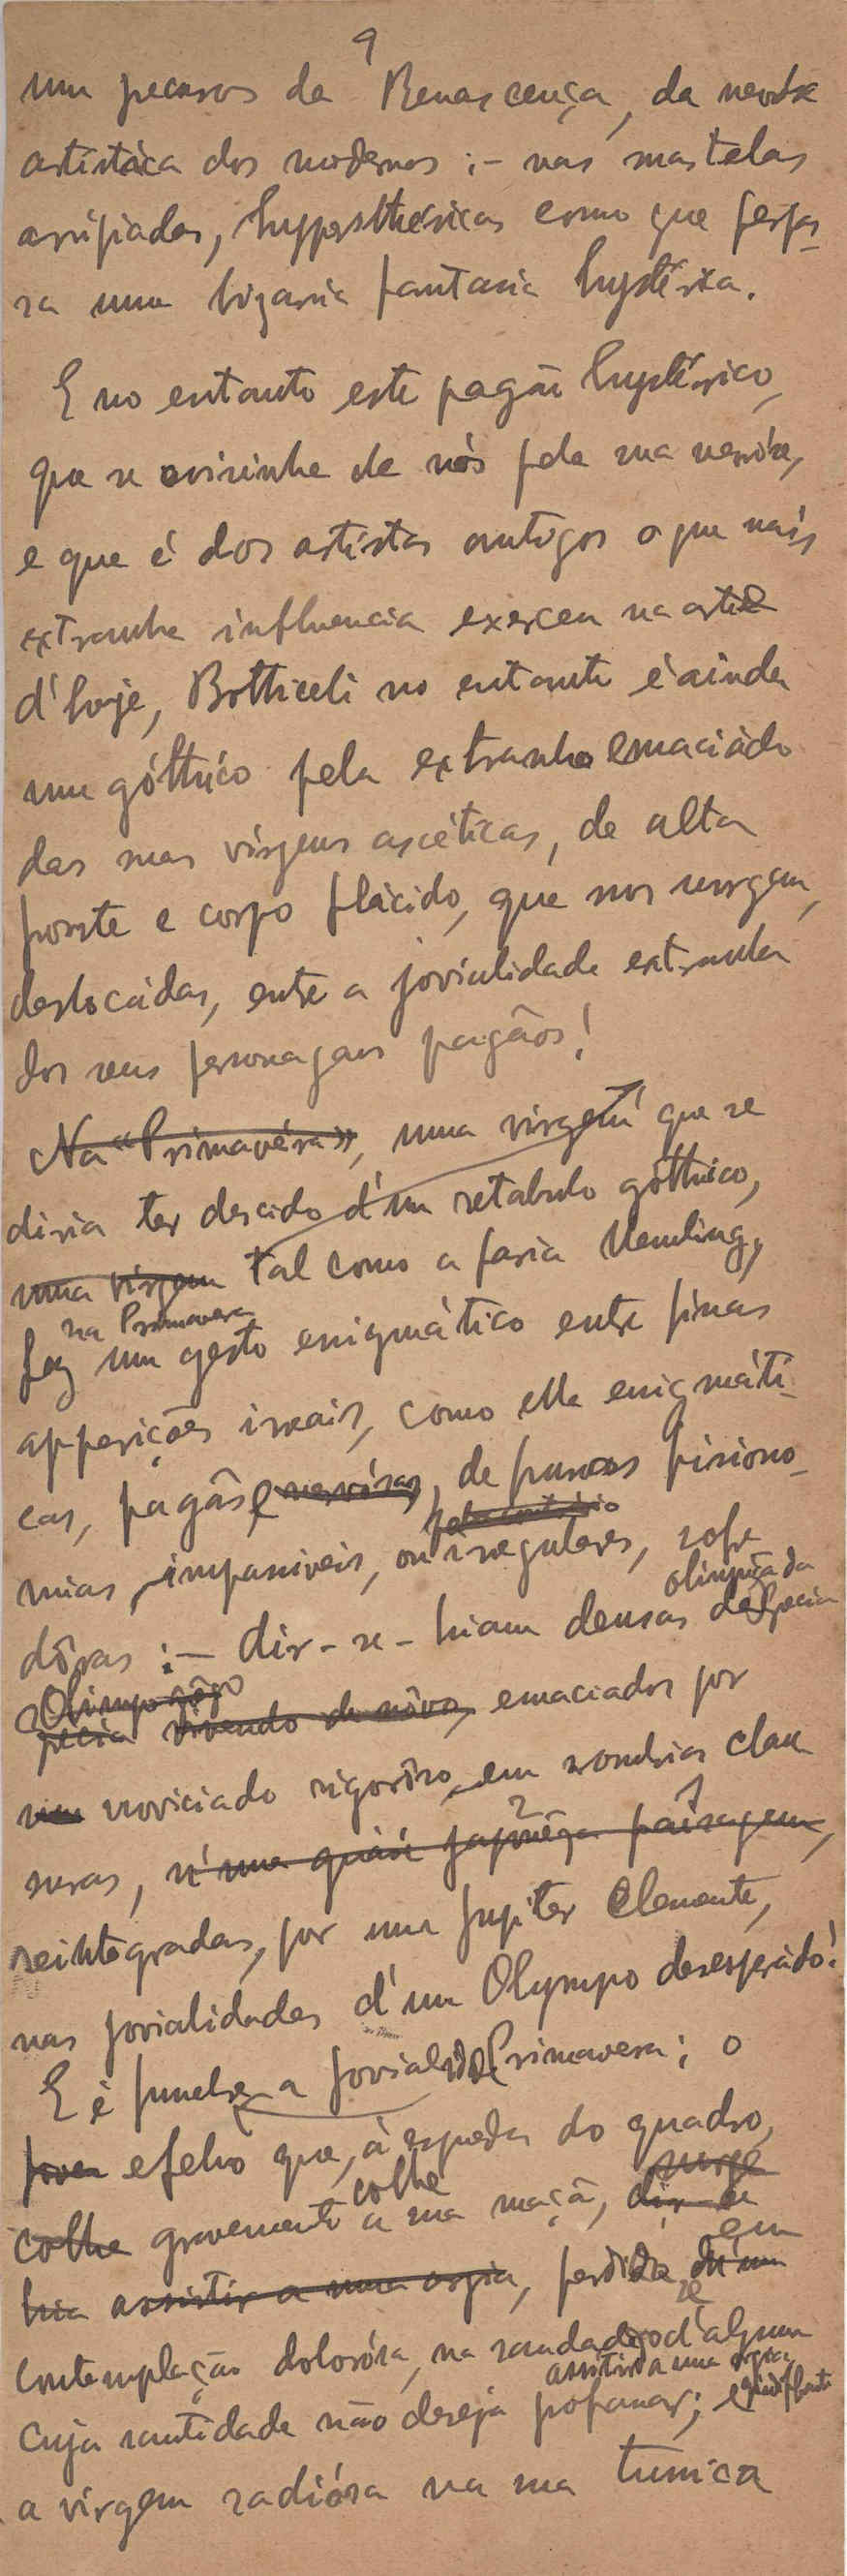 9
um precursor da Renascença, da nevróse
artistica dos modernos :- nas suas telas
arripiadas, hyperesthésicas como que perpas-
sa uma bizarria fantasia hystérica.
E no entanto este pagão hystérico,
que se avisinha de nós pela sua nevróse,
e que é dos artistas antigos o que mais
extranha influencia exerceu na arte
d'hoje, Botticeli no entanto é ainda
um góthico pela extranho emaciádo
das suas virgens ascéticas, de alta
fronte e corpo flácido, que nos surgem,
deslocádas, entre a jovialidade extranha
dos seus personagens pagãos!
Na «Primavéra», uma virgem que se
diria ter descido d'um retabulo góthico,
uma virgem tal como a faria Memling,
na Primavera
faz um gesto enigmático entre finas
apparições irreais, como ella enigmáti-
cas, pagãs e nervósas, de puras fisiono-
pelo contrário
mias impassiveis, ou irregulares, sofre
dôras :- dir-se-hiam deusas da Grecia
olimpica da
Olimpo
grecia vivendo de nôvo, emaciadas por
um noviciado rigorôso em sombrias clau
suras, n'uma quási japonêza paisagem,
2 1
reintegradas, por um Jupiter clemente,
nas jovialidades d'um Olympo desesperádo!
E é funebre a jovial Primavera; o
joven efebo que, á esquerda do quadro,
colhe gravemente colhe a sua maçã, dir-se
surge
hia assistir a uma orgia, perdido n'um
em
contemplação dolorósa, na saudade d'alguem
assistir a uma orgia
cuja santidade não deseja pofanar; e
a virgem radiósa na sua tunica